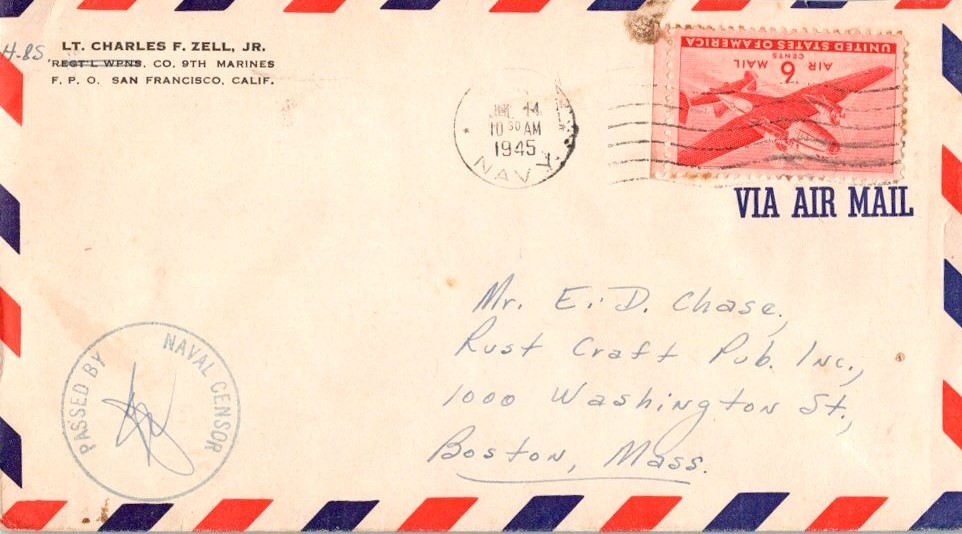 H-BS
LT. CHARLES F. ZELL, JR.
REGT'L WPNS. CO. 9TH MARINES
F. P. O. SAN FRANCISCO, CALIF.
14
10 30 AM
1945
NAVY
UNITED STATES OF AMERICA
CENTS
6
AIR MAIL
VIA AIR MAIL
Mr. E. D. Chase,
Rust Craft Pub. Inc.,
1000 Washington St.,
Boston, Mass.
PASSED BY NAVAL CENSOR